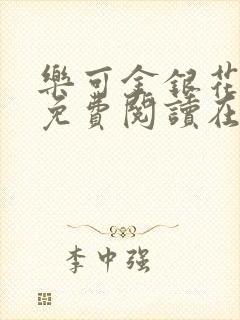 樂可金銀花
免費閱讀在
李中强